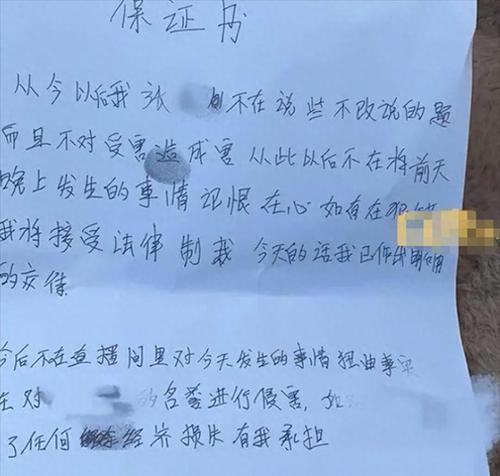 保证书
从今以后我张 不在说些不改说的题
而且不对受害造成害 从此以后不在将前天
晚上发生的事情记恨在心 如有在
我将接受法律制裁 今天的话我已作出明确
的交待
今后不在直播间里对今天发生的事情扭曲事实
在对 的名誉进行侵害,如
了任何 经济损失有我承担